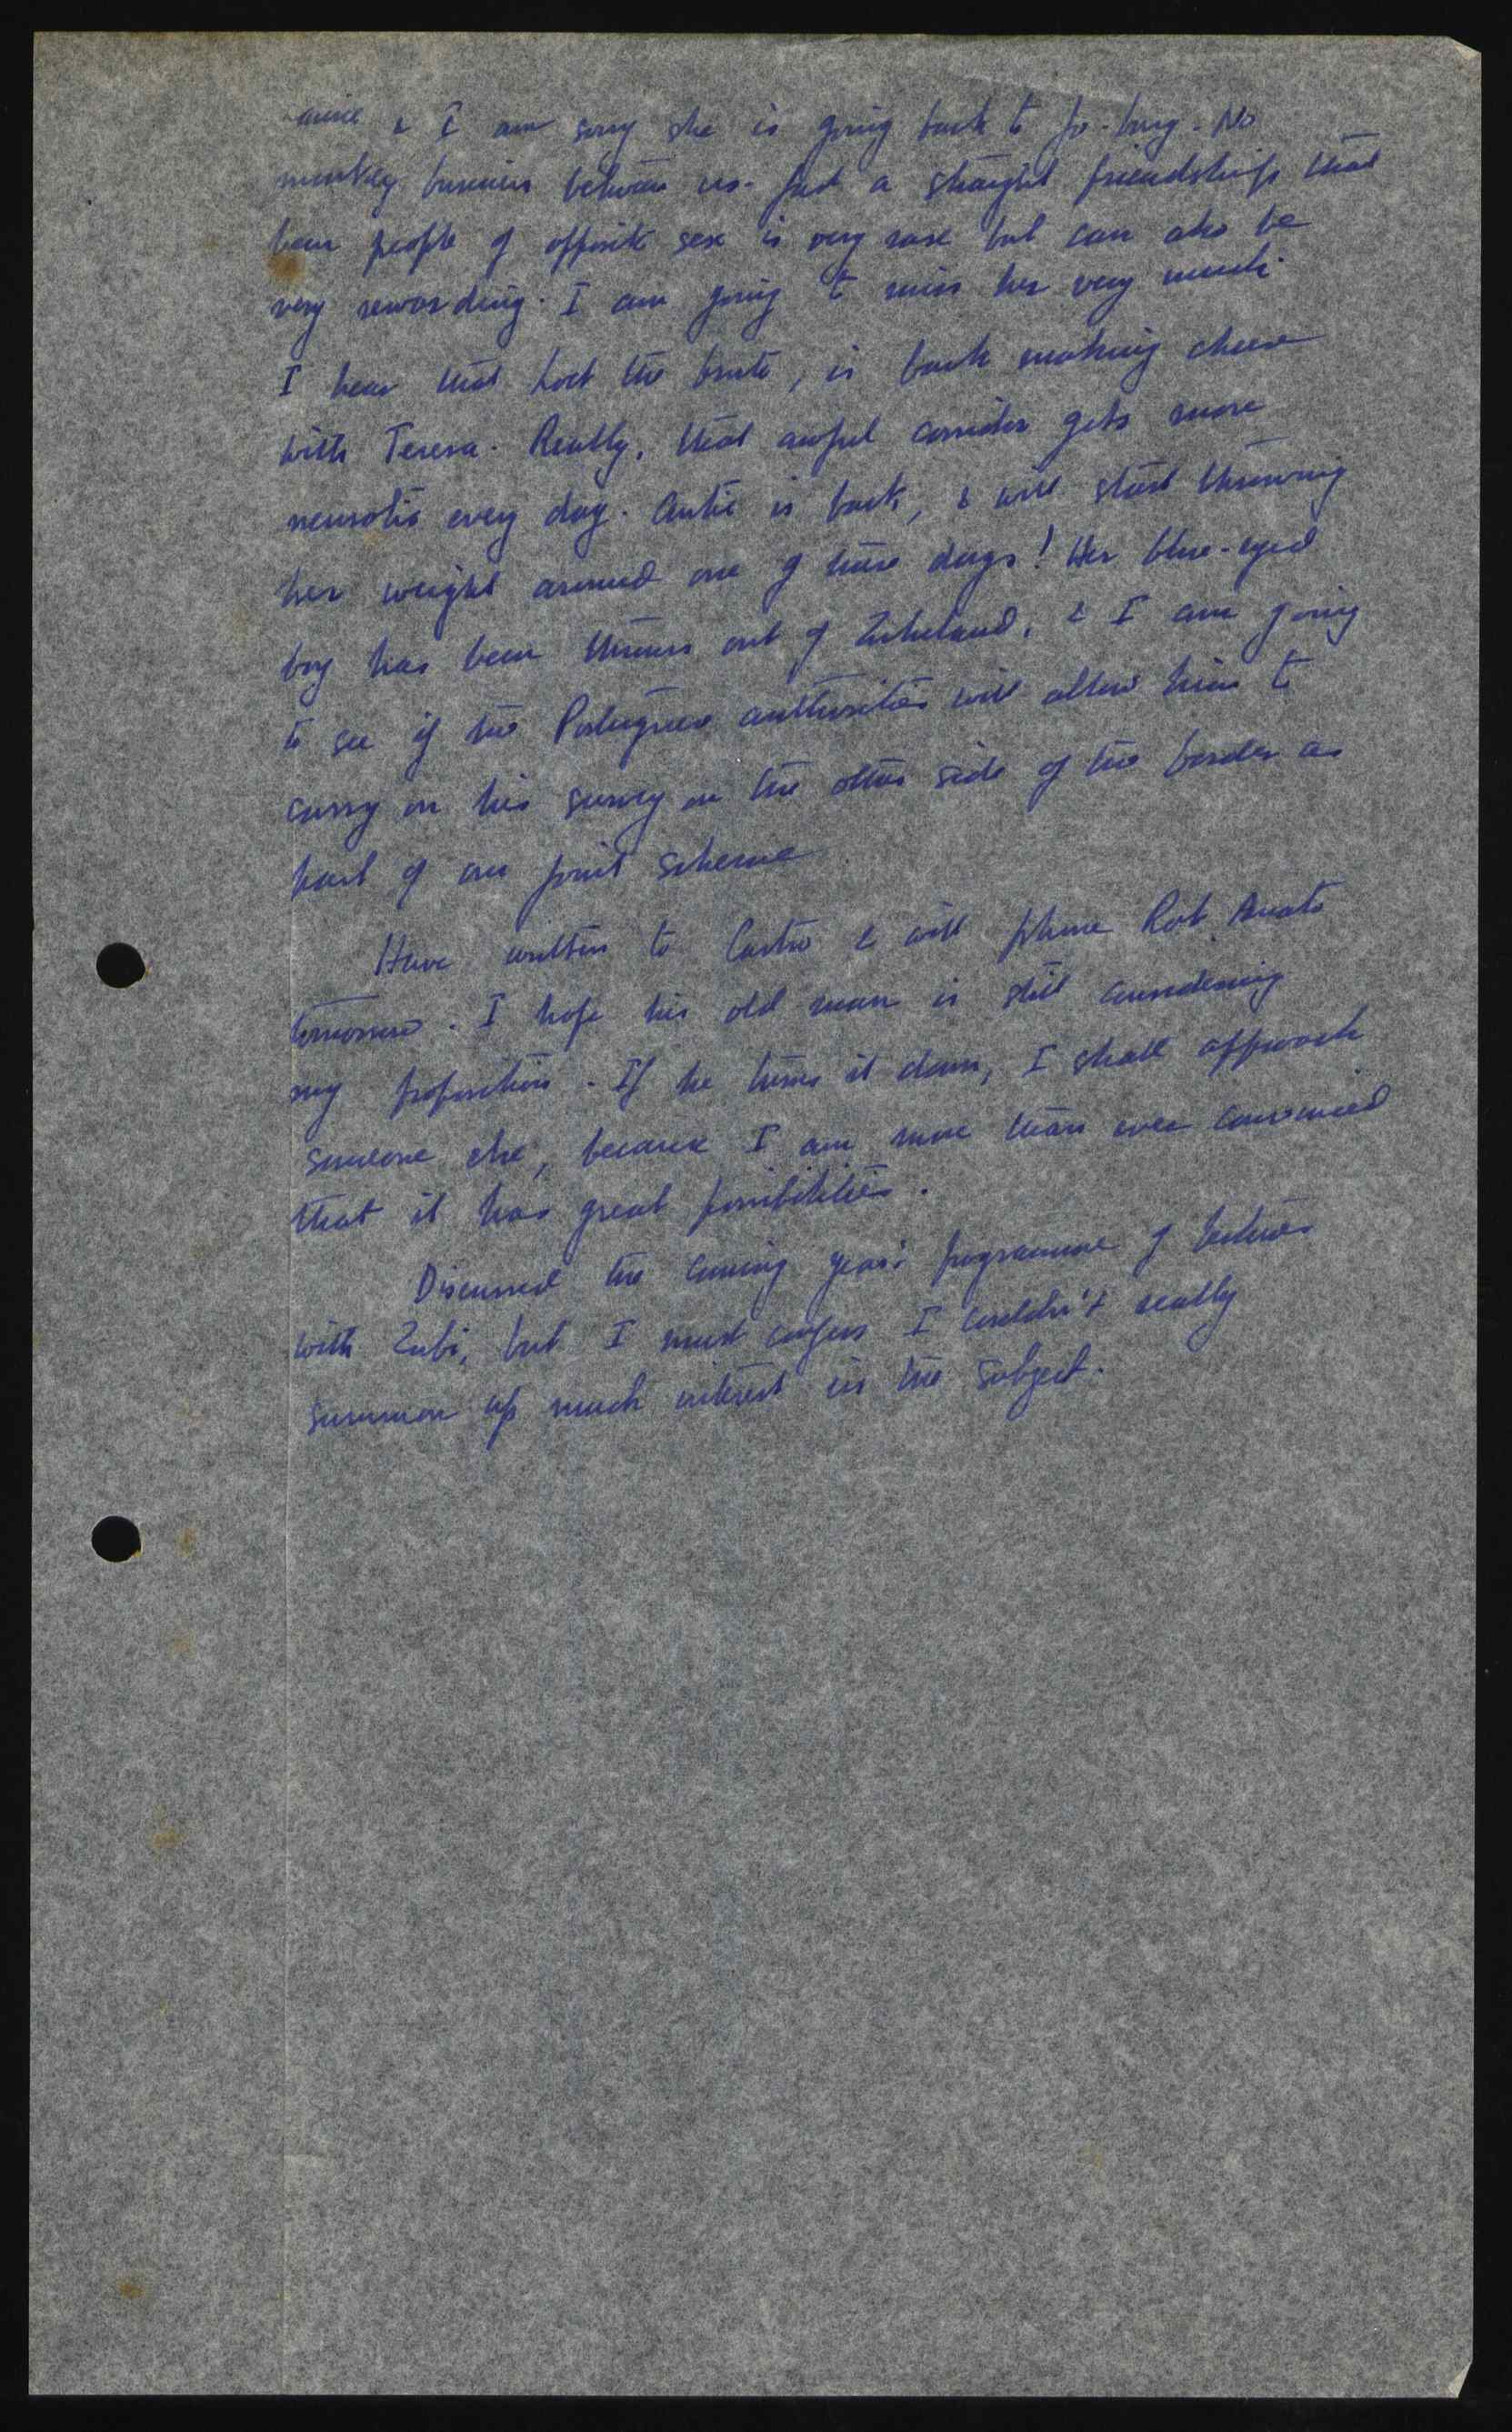 & I am sorry she is going back to Jo-burg. No
monkey business between us. Just a straight friendship that
between people of opposite sex is very rare but can also be
very rewarding. I am going to miss her very much.
I hear that the brute, is back making cheese
with Teresa. Really, that awful corridor gets more
neurotic every day. is back, & will start throwing
her weight around one of these days! Her blue-eyed
boy has been thrown out of Zululand, & I am going
to see if the Portuguese authorities will allow him to
carry on his survey on the other side of the border as
part of our joint scheme
Have written to Castro & will phone Rob
tomorrow. I hope his old man is still considering
my proposition. If he turns it down, I shall approach
someone else, because I am more than ever convinced
that it has great possibilities.
Discussed the coming year's programme of lectures
with Zubi, but I must confess I couldn't really
summon up much interest in the subject.